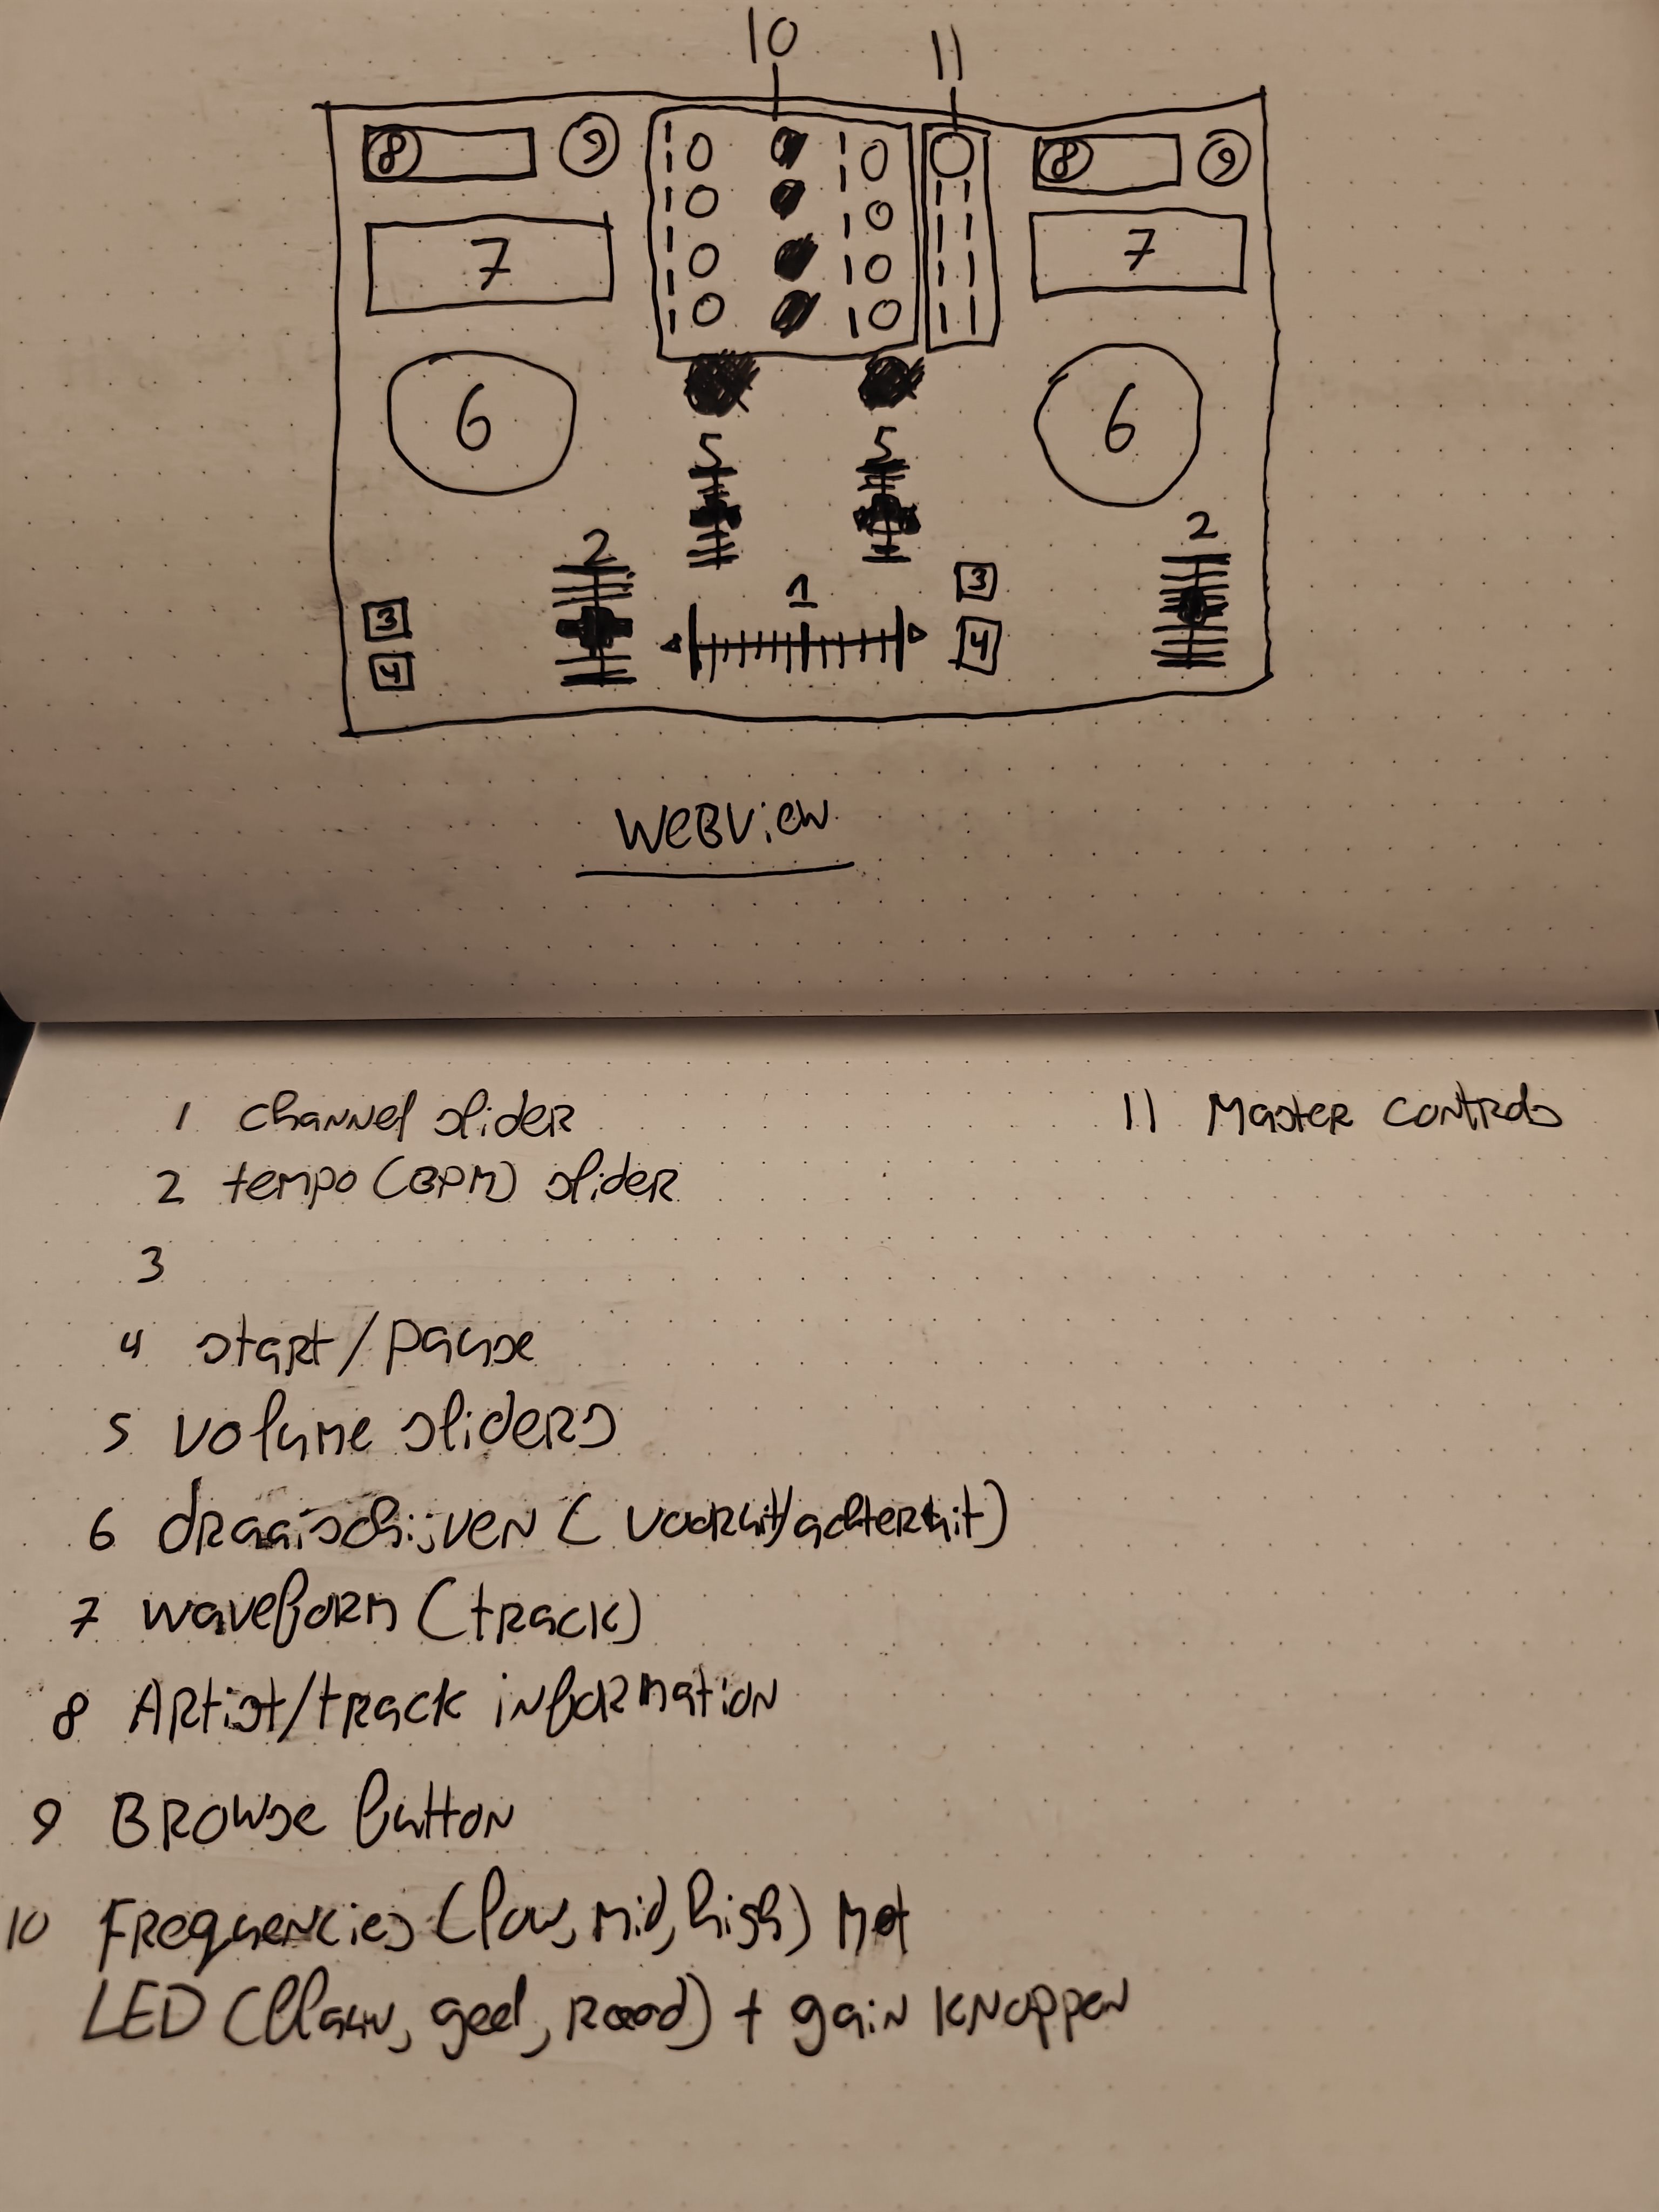 10 11
8 9 8 9
7 7
6 6
5 5
2 2
1
3 3
4 4
WEBView
1 channel slider
2 tempo (BPM) slider
3
4 start/pause
5 volume sliders
6 draaischijven (vooruit/achteruit)
7 waveform (track)
8 Artist/track information
9 Browse button
10 Frequencies (low, mid, high) met
LED (blauw, geel, rood) + gain knoppen
11 Master controls